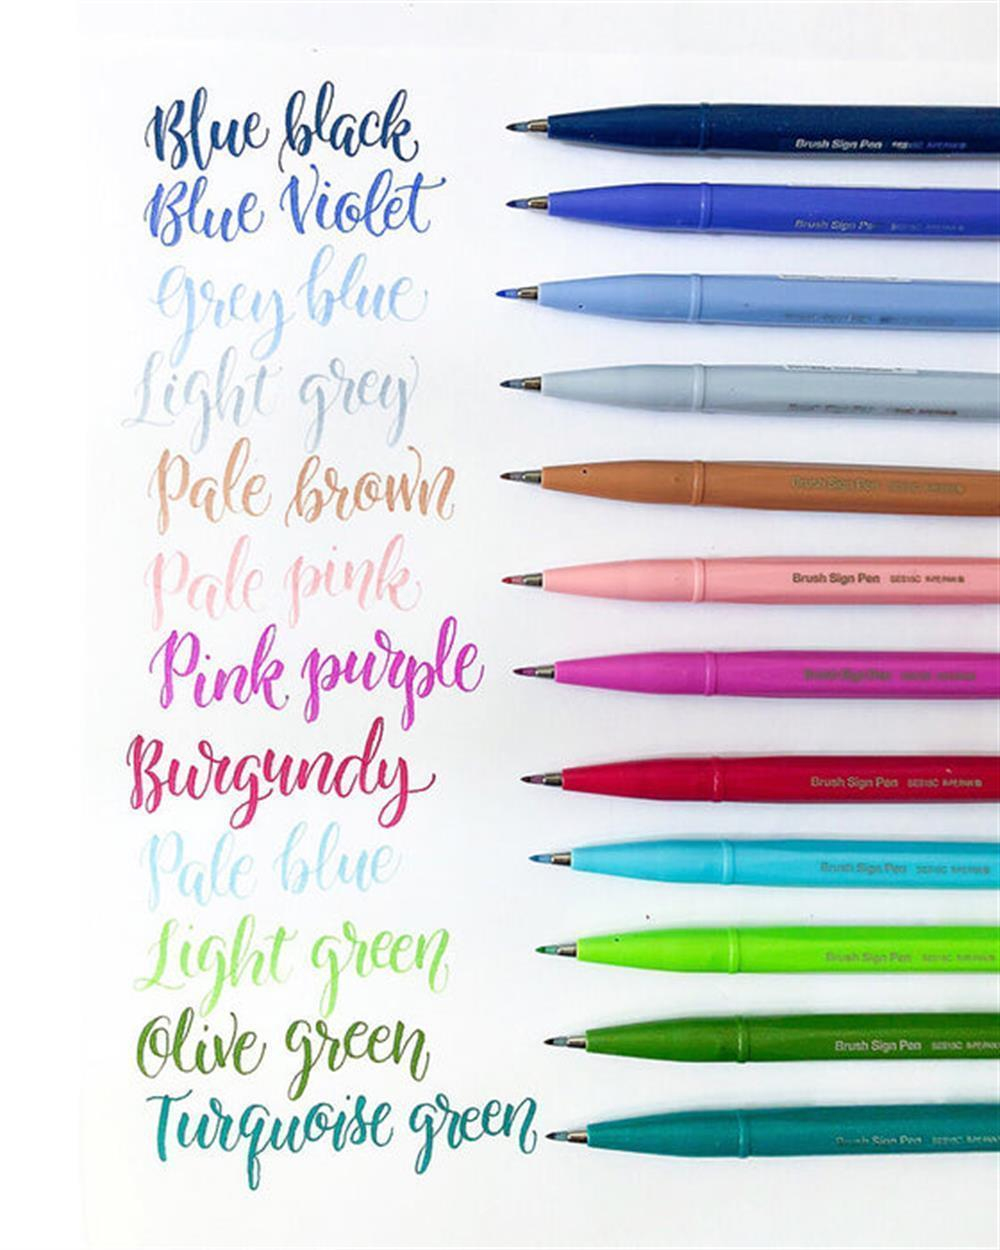 Blue black
Brush Sign Pen
Blue Violet
Brush Sign Pen
Grey blue
Light grey
Pale brown
Brush Sign Pen
Pale pink
Brush Sign Pen SES15C
Pink purple
Brush Sign Pen
Burgundy
Brush Sign Pen SES15C
Pale blue
Brush Sign Pen
Light green
Brush Sign Pen
Olive green
Brush Sign Pen SES15C
Turquoise green
Brush Sign Pen